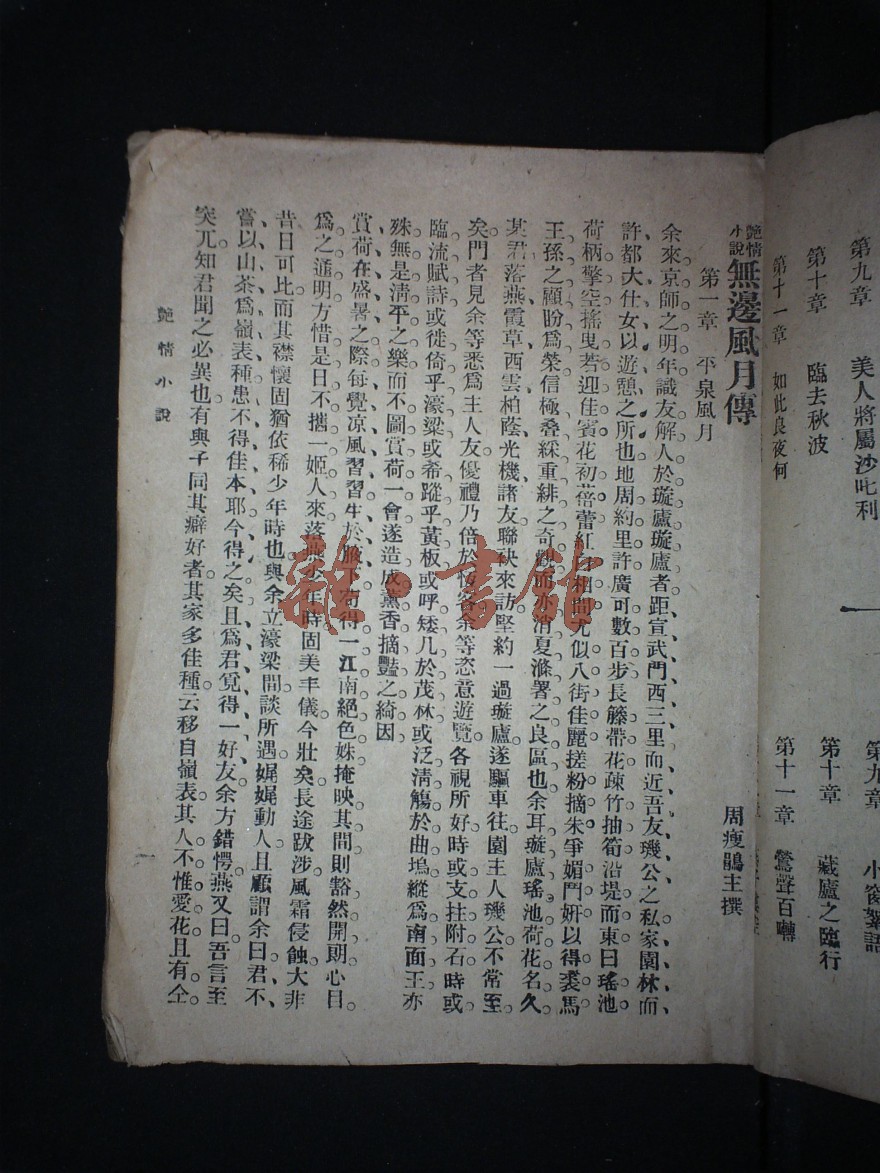 第九章　美人將屬沙叱利
第十章　臨去秋波
第十一章　如此良夜何
第九章　小窗絮語
第十章　藏廬之臨行
第十一章　鶯聲百囀
艷情小說 無邊風月傳
周瘦鵑主撰
第一章　平泉風月
余來京師之明年識友解人於璇廬璇廬者距宣武門西三里而近吾友璣公之私家園林而
許都大仕女以遊憩之所也地周約里許廣可數百步長籐帶花疎竹抽筍沿堤而東曰瑤池
荷柄擎空搖曳若迎佳賓花初蓓蕾紅白相間尤似八街佳麗搓粉摘朱爭媚鬥姸以得裘馬
王孫之顧盼爲榮信極叠綵重緋之奇觀而亦消夏滌署之良區也余耳璇廬瑤池荷花名久
某君落燕霞草西雲柏蔭光機諸友聯袂來訪堅約一過璇廬遂驅車往園主人璣公不常至
矣門者見余等悉爲主人友優禮乃倍於恆客余等恣意遊覽各視所好時或支拄附石時或
臨流賦詩或徙倚乎濠梁或希蹤乎黃板或呼矮几於茂林或泛淸觴於曲塢縱爲南面王亦
殊無是淸平之樂而不圖賞荷一會遂造成薰香摘豔之綺因
賞荷在盛暑之際每覺凉風習習生於腋下苟得一江南絕色姝掩映其間則豁然開朗心目
爲之遥明方惜是日不攜一姬人來落燕少年時固美丰儀今壯矣長途跋涉風霜侵蝕大非
昔日可比而其襟懷固猶依稀少年時也與余立濠梁間談所遇娓娓動人且顧謂余曰君不
嘗以山茶爲嶺表種患不得佳本耶今得之矣且爲君覓得一好友余方錯愕燕又曰吾言至
突兀知君聞之必異也有與子同其癖好者其家多佳種云移自嶺表其人不惟愛花且有仝
艷情小說
一
雜·書館